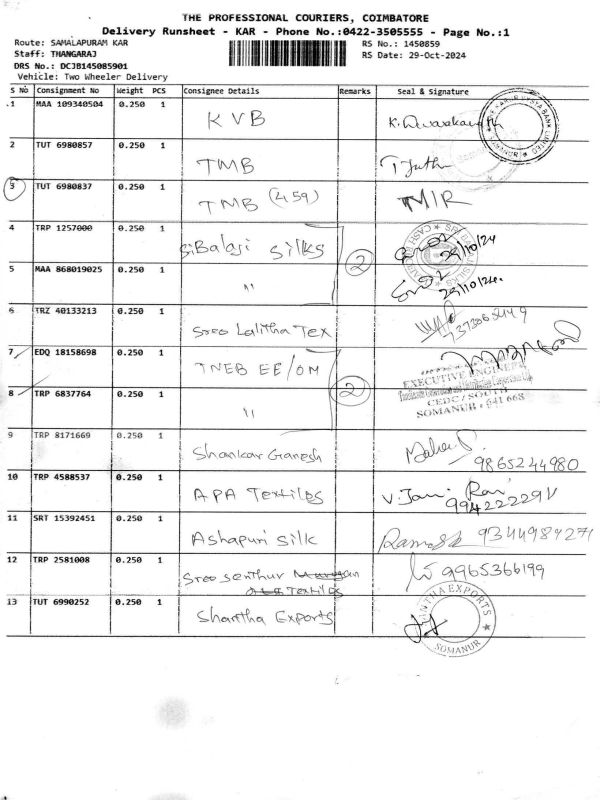 THE PROFESSIONAL COURIERS, COIMBATORE
Delivery Runsheet - KAR - Phone No.:0422-3505555 - Page No.:1
Route: SAMALAPURAM KAR
RS No.: 1450859
Staff: THANGARAJ
RS Date: 29-Oct-2024
DRS No.: DCJB145085901
Vehicle: Two Wheeler Delivery
S No Consignment No Weight PCS Consignee Details Remarks Seal & Signature
1 MAA 109340504 0.250 1 KVB
2 TUT 6980857 0.250 1 TMB
3 TUT 6980837 0.250 1 TMB (459) MIR
4 TRP 1257000 0.250 1 Sri Balaji silks 29/10/24
5 MAA 868019025 0.250 1 " 2 29/10/24.
6 TRZ 40133213 0.250 1 Sree Lalitha Tex
7 EDQ 18158698 0.250 1 TNEB EE/OM
EXECUTIVE ENGINEER
8 TRP 6837764 0.250 1 " 2
CEDC/SOUTH
SOMANUR - 641 668
9 TRP 8171669 0.250 1 Shankar Ganesh 9865244980
10 TRP 4588537 0.250 1 APA Textiles
11 SRT 15392451 0.250 1 Ashapuri silk 9344984271
12 TRP 2581008 0.250 1 Sree Senthur 9965366199
Textiles
13 TUT 6990252 0.250 1 Shantha Exports
SHANTHA EXPORTS
SOMANUR